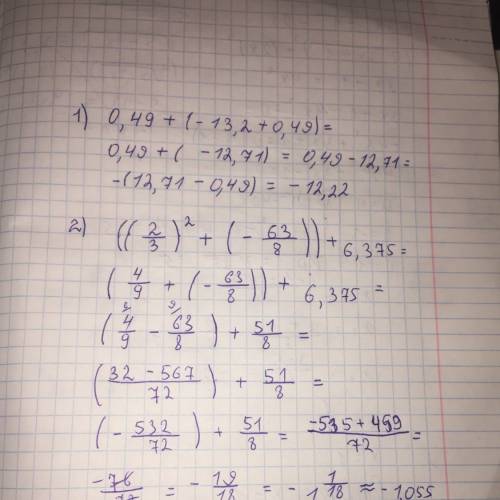 1) 0,49 + (-13,2 + 0,49) =
0,49 + ( -12,71) = 0,49 - 12,71 =
-(12,71 - 0,49) = -12,22
2) ((2/3)^2 + (-63/8)) + 6,375 =
(4/9 + (-63/8)) + 6,375 =
(4/9 - 63/8) + 51/8 =
(32 - 567/72) + 51/8 =
(-532/72) + 51/8 = -535 + 459/72 =
-76/72 = -19/18 = -1 1/18 ≈ -1,055